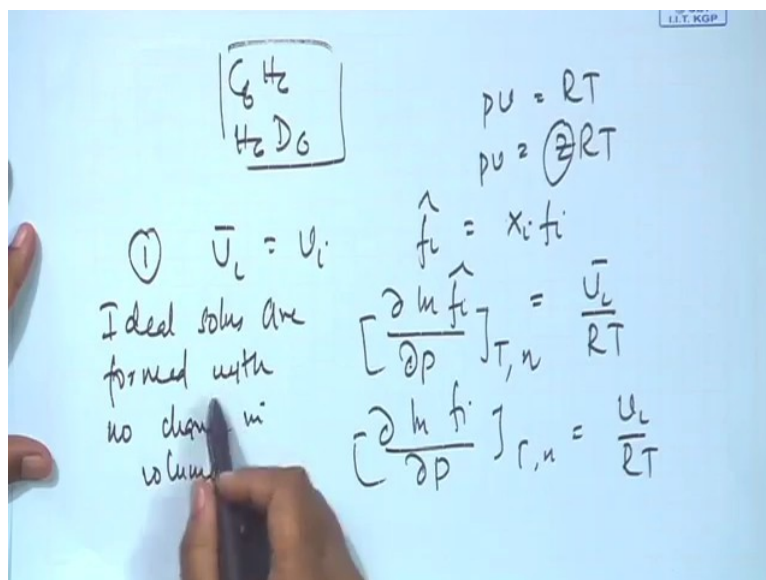 I.I.T. KGP
C₆H₆
H₂O
pv = RT
pv = ZRT
① v̄ᵢ = vᵢ
f̂ᵢ = xᵢ fᵢ
Ideal solns are
formed with
no change in
volume
[∂ ln f̂ᵢ / ∂p]T,n = v̄ᵢ / RT
[∂ ln fᵢ / ∂p]T,n = vᵢ / RT